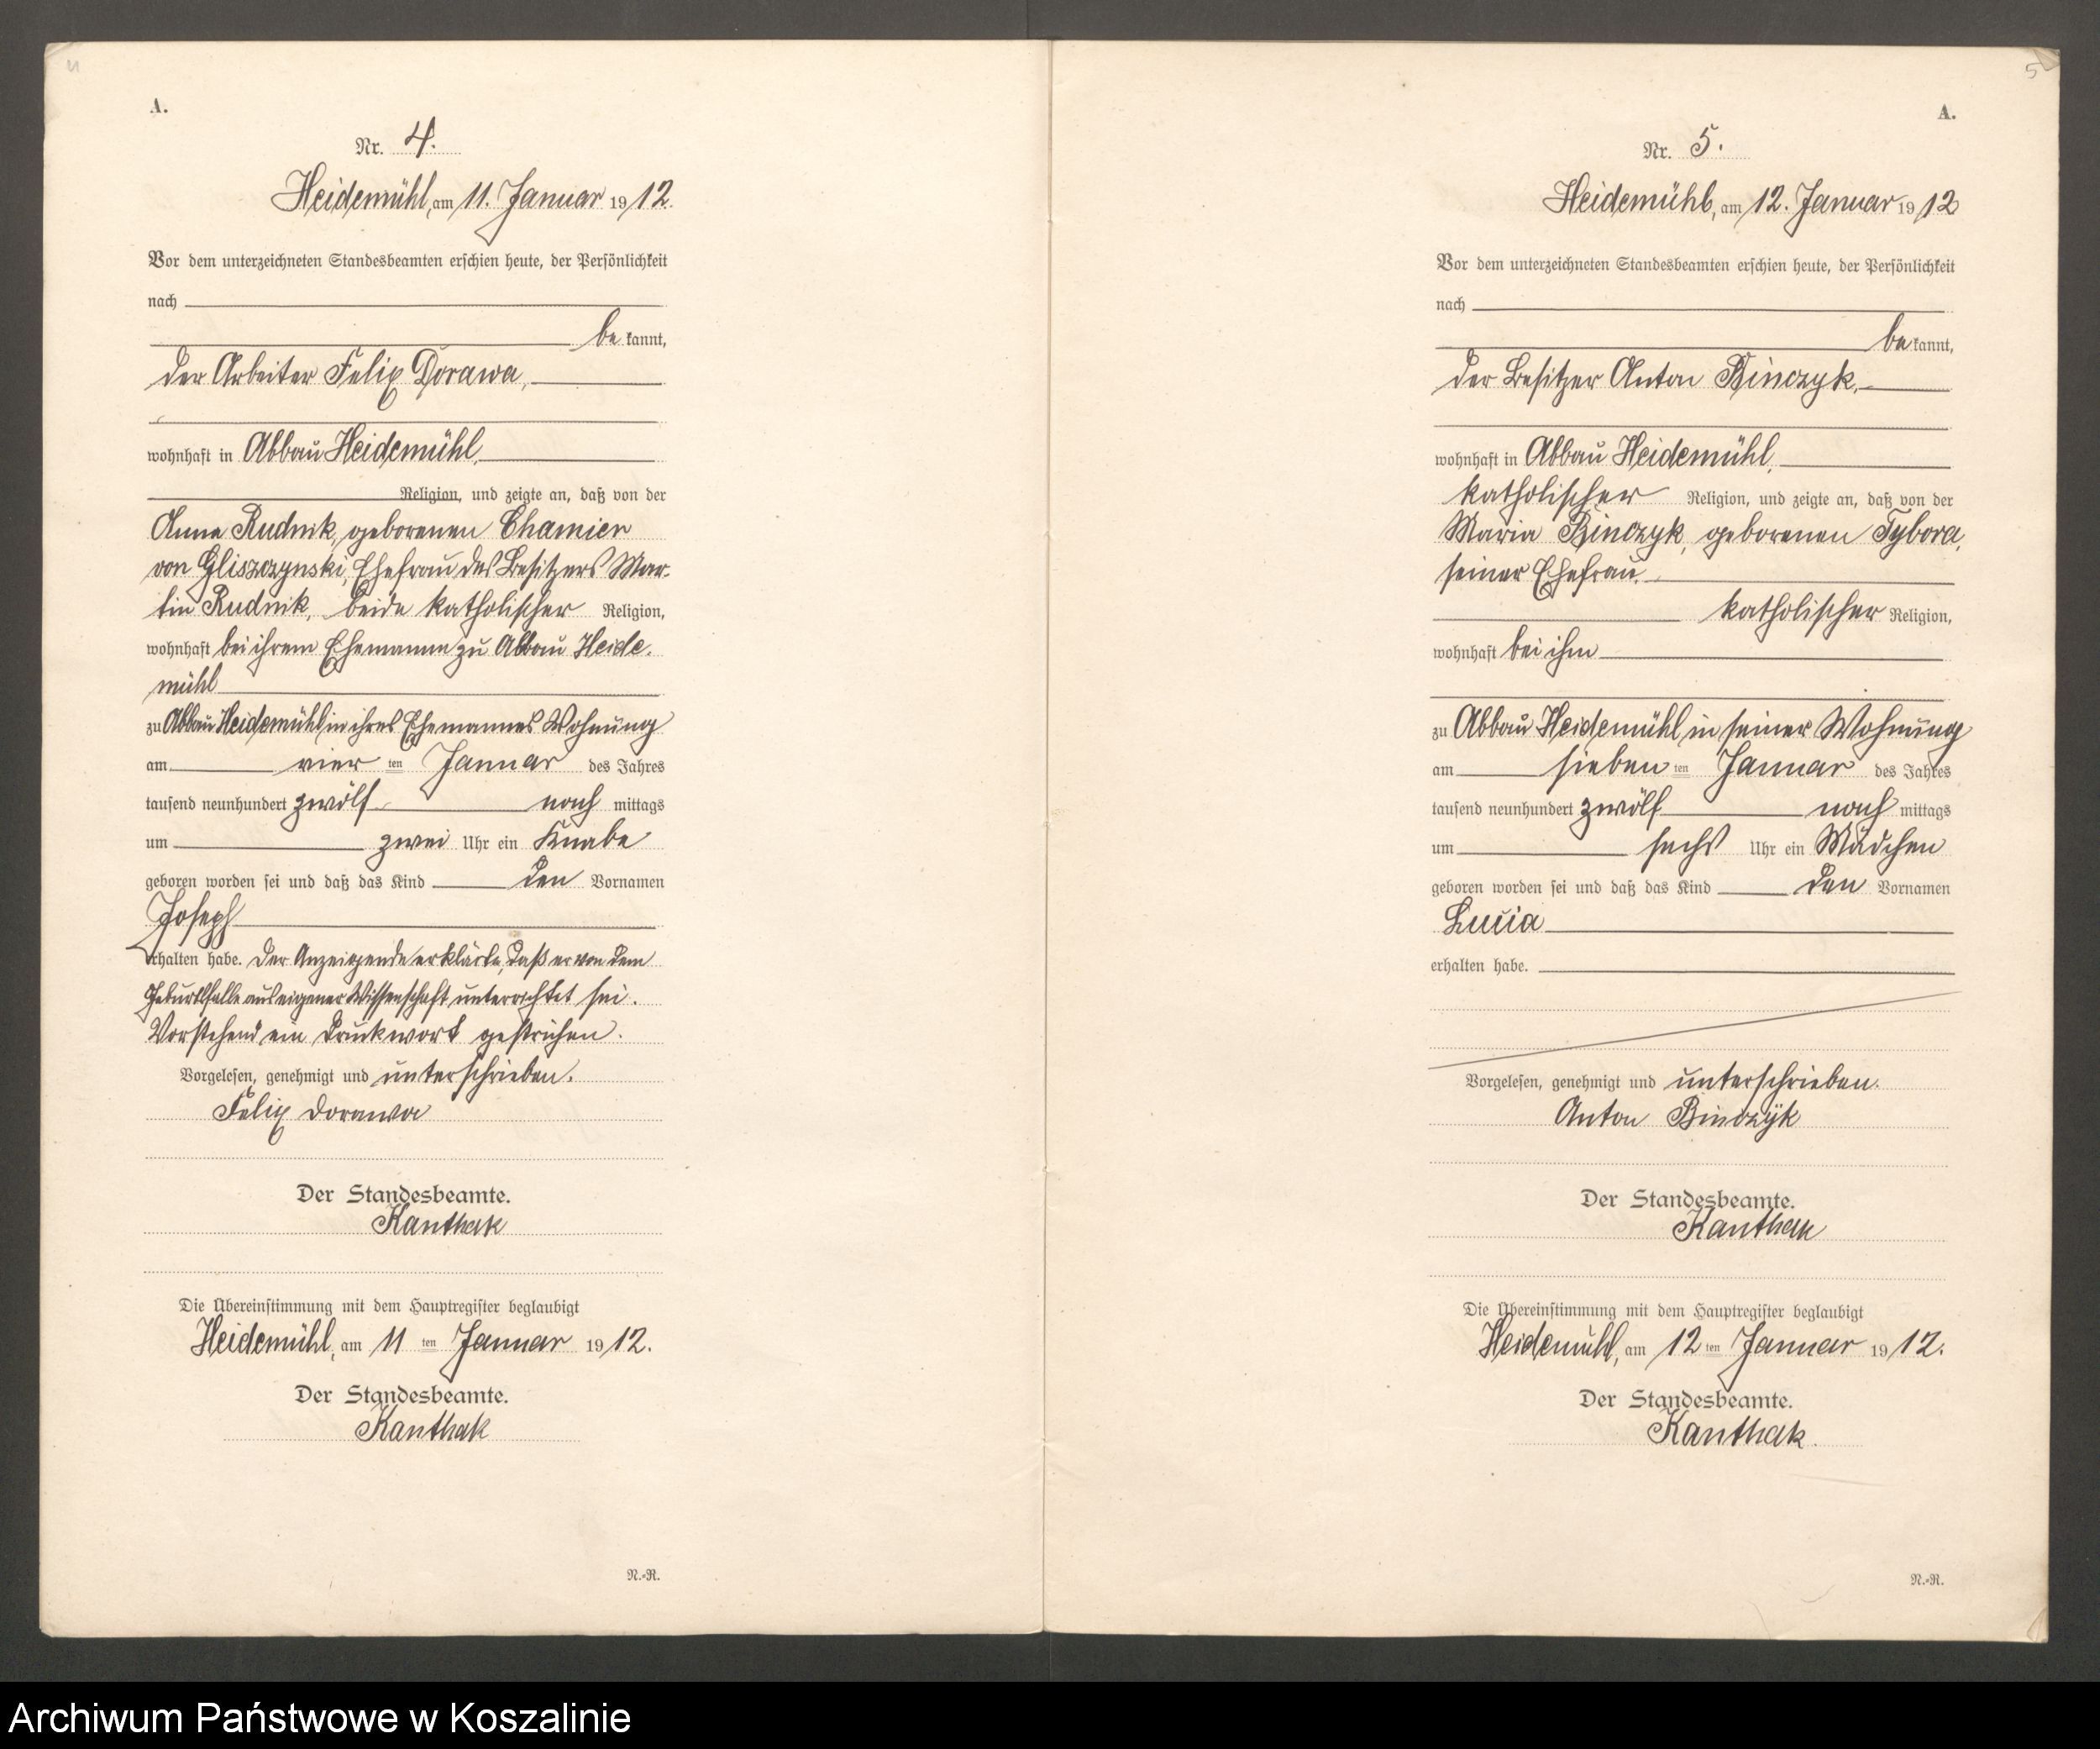 4
A.
Nr. 4.
Heidemühl, am 11. Januar 1912.
Vor dem unterzeichneten Standesbeamten erschien heute, der Persönlichkeit
nach
be kannt,
der Arbeiter Felix Dorawa,
wohnhaft in Abbau Heidemühl,
Religion, und zeigte an, daß von der
Anna Rudnik, geborenen Chamier
von Gliszczynski, Ehefrau des Besitzers Mar-
tin Rudnik, beide katholischer Religion,
wohnhaft bei ihrem Ehemann zu Abbau Heide-
mühl
zu Abbau Heidemühl in ihres Ehemannes Wohnung
am vier ten Januar des Jahres
tausend neunhundert zwölf nach mittags
um zwei Uhr ein Knabe
geboren worden sei und daß das Kind den Vornamen
Joseph
erhalten habe. Der Anzeigende erklärte, daß er von dem
Geburtsfalle aus eigener Wissenschaft unterrichtet sei.
Vorstehend ein Druckwort gestrichen.
Vorgelesen, genehmigt und unterschrieben.
Felix Dorawa
Der Standesbeamte.
Kanthak
Die Übereinstimmung mit dem Hauptregister beglaubigt
Heidemühl, am 11 ten Januar 1912.
Der Standesbeamte.
Kanthak
N.-R.
5
A.
Nr. 5.
Heidemühl, am 12. Januar 1912
Vor dem unterzeichneten Standesbeamten erschien heute, der Persönlichkeit
nach
be kannt,
der Besitzer Anton Binczyk,
wohnhaft in Abbau Heidemühl,
katholischer Religion, und zeigte an, daß von der
Maria Binczyk, geborenen Tybora,
seiner Ehefrau,
katholischer Religion,
wohnhaft bei ihm
zu Abbau Heidemühl in seiner Wohnung
am sieben ten Januar des Jahres
tausend neunhundert zwölf nach mittags
um sechs Uhr ein Mädchen
geboren worden sei und daß das Kind den Vornamen
Lucia
erhalten habe.
Vorgelesen, genehmigt und unterschrieben.
Anton Binczyk
Der Standesbeamte.
Kanthak
Die Übereinstimmung mit dem Hauptregister beglaubigt
Heidemühl, am 12 ten Januar 1912.
Der Standesbeamte.
Kanthak.
N.-R.
Archiwum Państwowe w Koszalinie